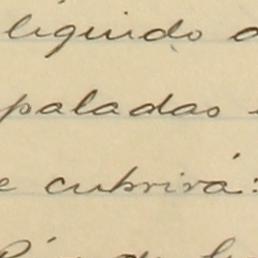 liquido
paladas
e cubrirá: